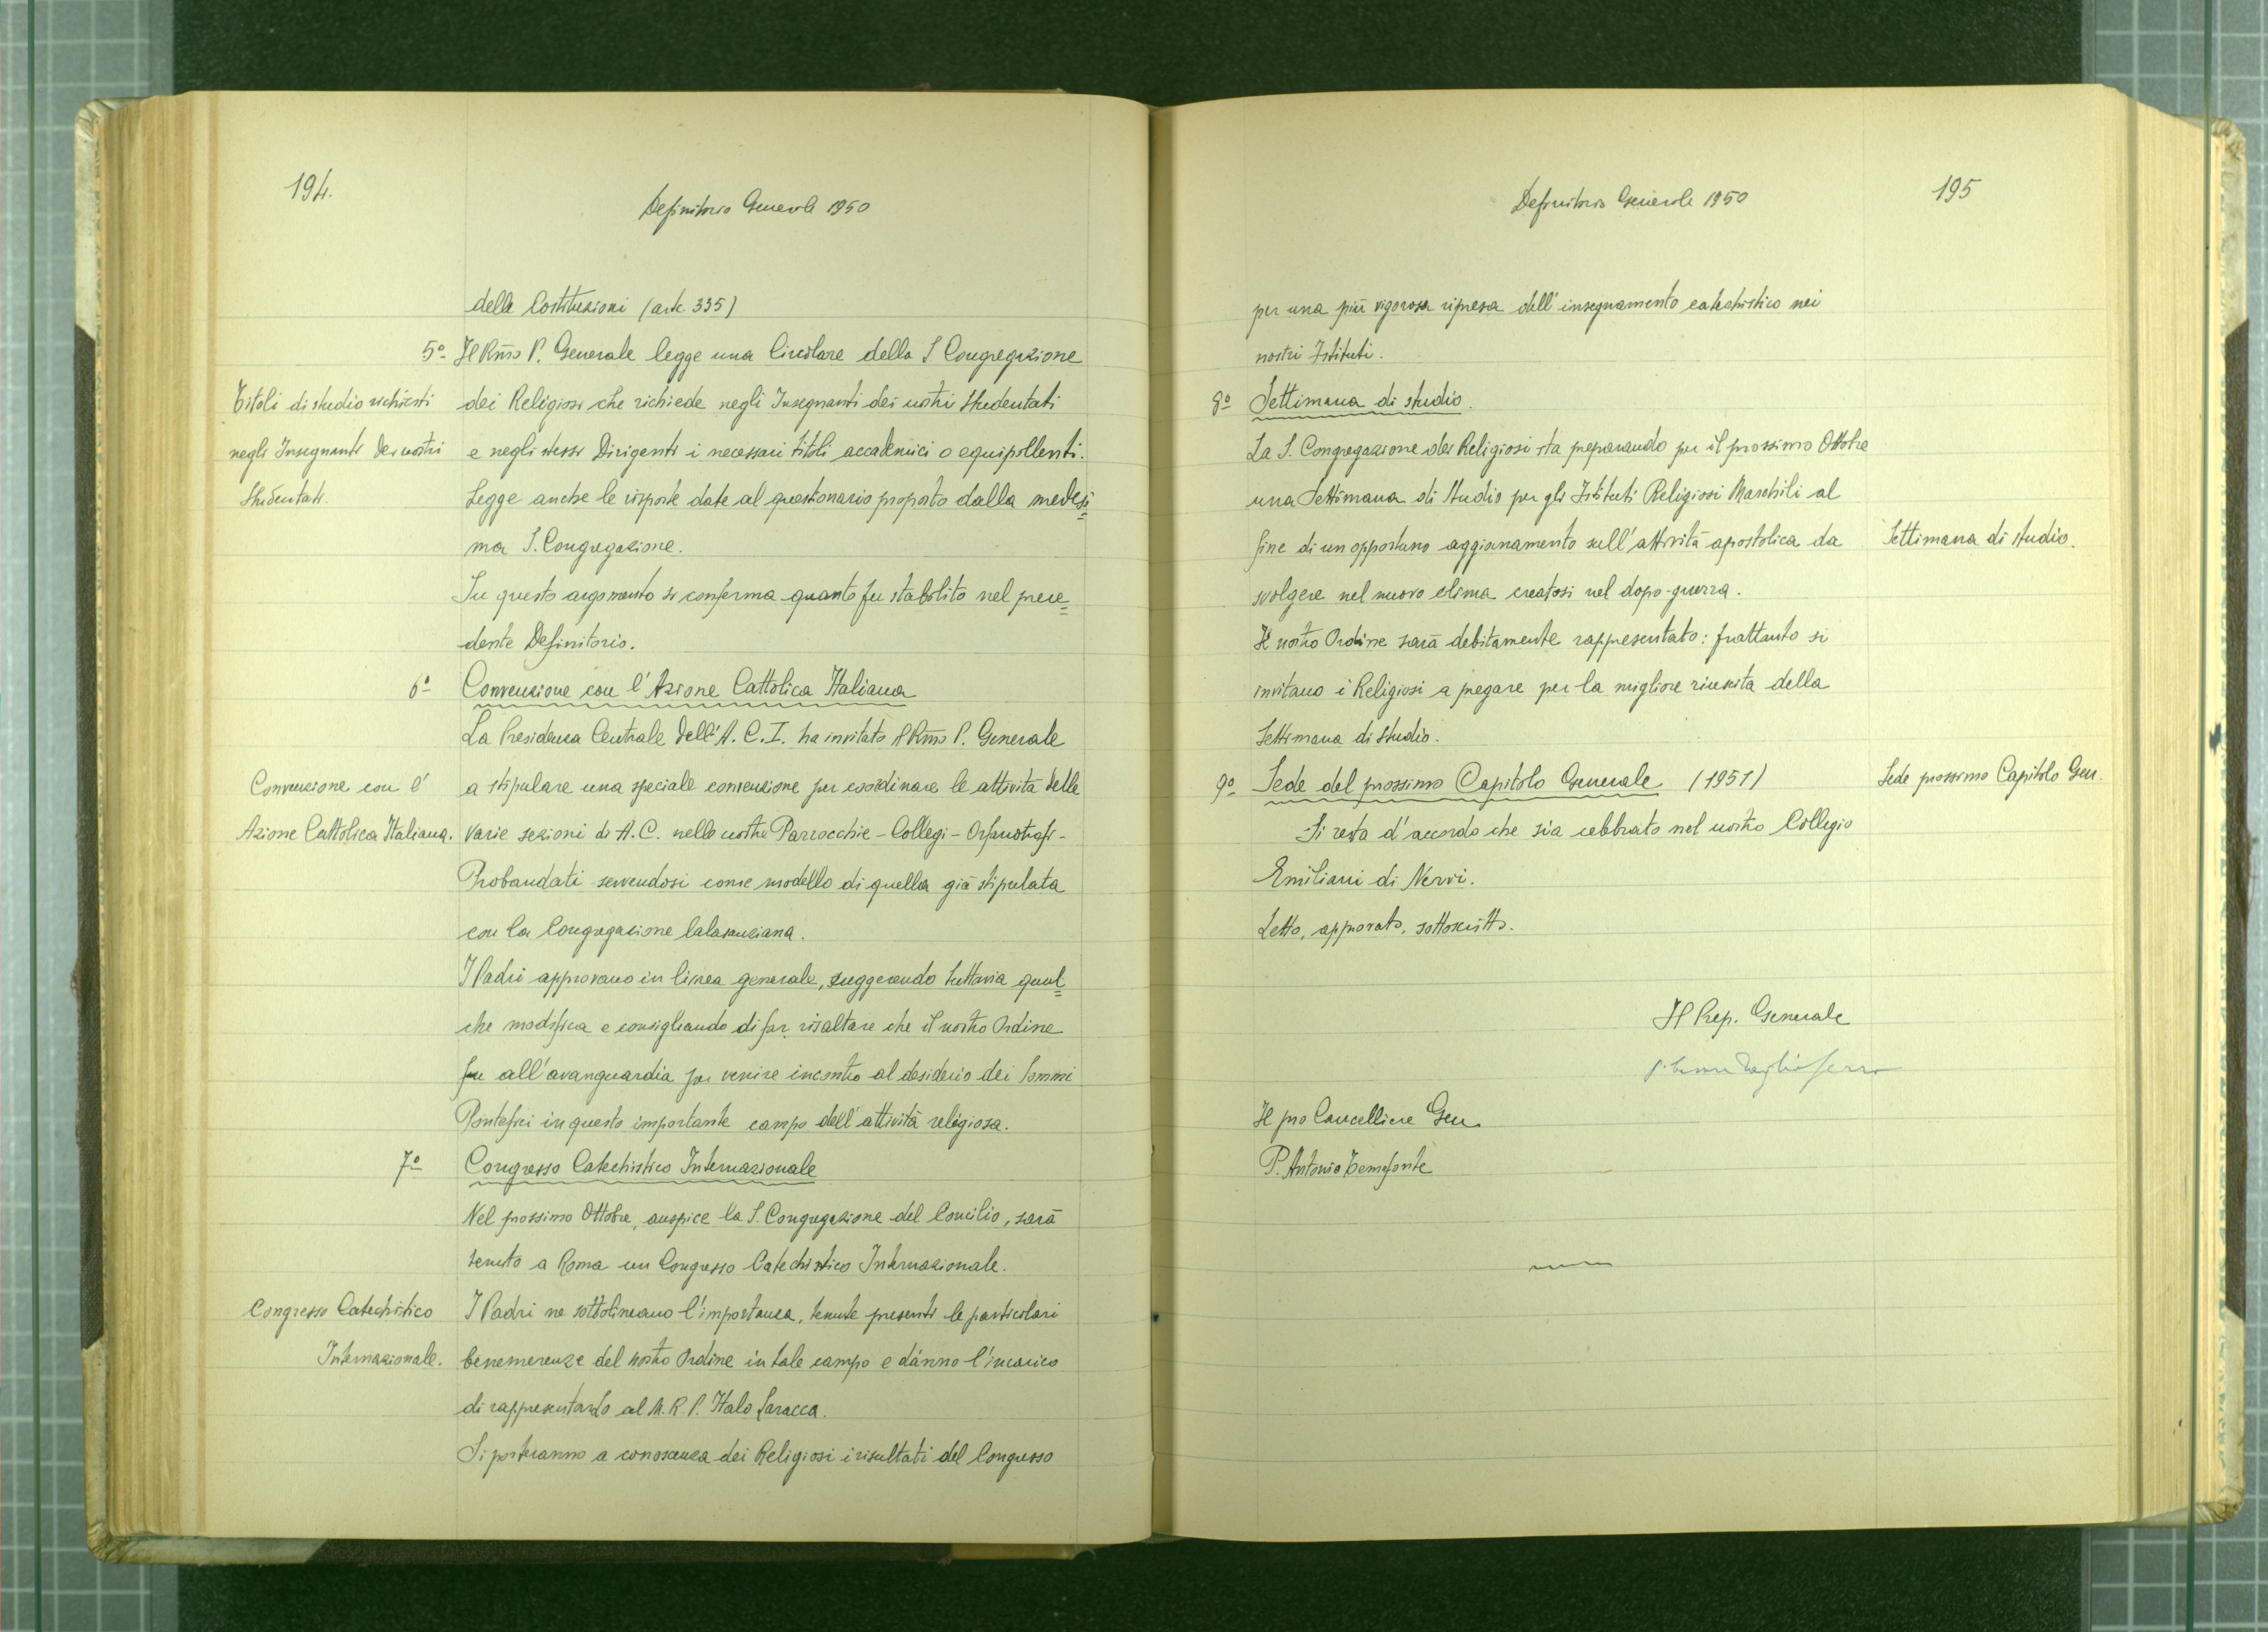 194.
Definitorio Generale 1950
delle Costituzioni (art. 335)
5º- Il Rmo P. Generale legge una Circolare della S Congregazione
Titoli di studio richiesti
dei Religiosi che richiede negli Insegnanti dei nostri Studentati
negli Insegnanti dei nostri
e negli stessi Dirigenti i necessari titoli accademici o equipollenti.
Studentati.
Legge anche le risposte date al questionario proposto dalla medesi=
ma S. Congregazione.
Su questo argomento si conferma quanto fu stabilito nel prece=
dente Definitorio.
6º Convenzione con l'Azione Cattolica Italiana
La Presidenza Centrale dell'A. C. I. ha invitato il Rmo P. Generale
Convenzione con l'
a stipulare una speciale convenzione per coordinare le attività delle
Azione Cattolica Italiana.
varie sezioni di A. C. nelle nostre Parrocchie - Collegi - Orfanotrofi -
Probandati servendosi come modello di quella già stipulata
con la Congregazione Calasanziana.
I Padri approvano in linea generale, suggerendo tuttavia qual=
che modifica e consigliando di far risaltare che il nostro Ordine
fu all'avanguardia per venire incontro al desiderio dei Sommi
Pontefici in questo importante campo dell'attività religiosa.
7º Congresso Catechistico Internazionale
Nel prossimo Ottobre, auspice la S. Congregazione del Concilio, sarà
tenuto a Roma un Congresso Catechistico Internazionale.
Congresso Catechistico
I Padri ne sottolineano l'importanza, tenute presenti le particolari
Internazionale.
benemerenze del nostro Ordine in tale campo e dànno l'incarico
di rappresentarlo al M. R. P. Italo Laracca.
Si porteranno a conoscenza dei Religiosi i risultati del Congresso
Definitorio Generale 1950
195
per una più vigorosa ripresa dell'insegnamento catechistico nei
nostri Istituti.
8º Settimana di studio.
La S. Congregazione dei Religiosi sta preparando per il prossimo Ottobre
una Settimana di Studio per gli Istituti Religiosi Maschili al
fine di un opportuno aggiornamento sull'attività apostolica da
Settimana di studio.
svolgere nel nuovo clima creatosi nel dopo-guerra.
Il nostro Ordine sarà debitamente rappresentato: frattanto si
invitano i Religiosi a pregare per la migliore riuscita della
Settimana di Studio.
9º Sede del prossimo Capitolo Generale (1951)
Sede prossimo Capitolo Gen.
Si resta d'accordo che sia celebrato nel nostro Collegio
Emiliani di Nervi.
Letto, approvato, sottoscritto.
Il Prep. Generale
Il pro Cancelliere Gen.
P. Antonio Temofonte